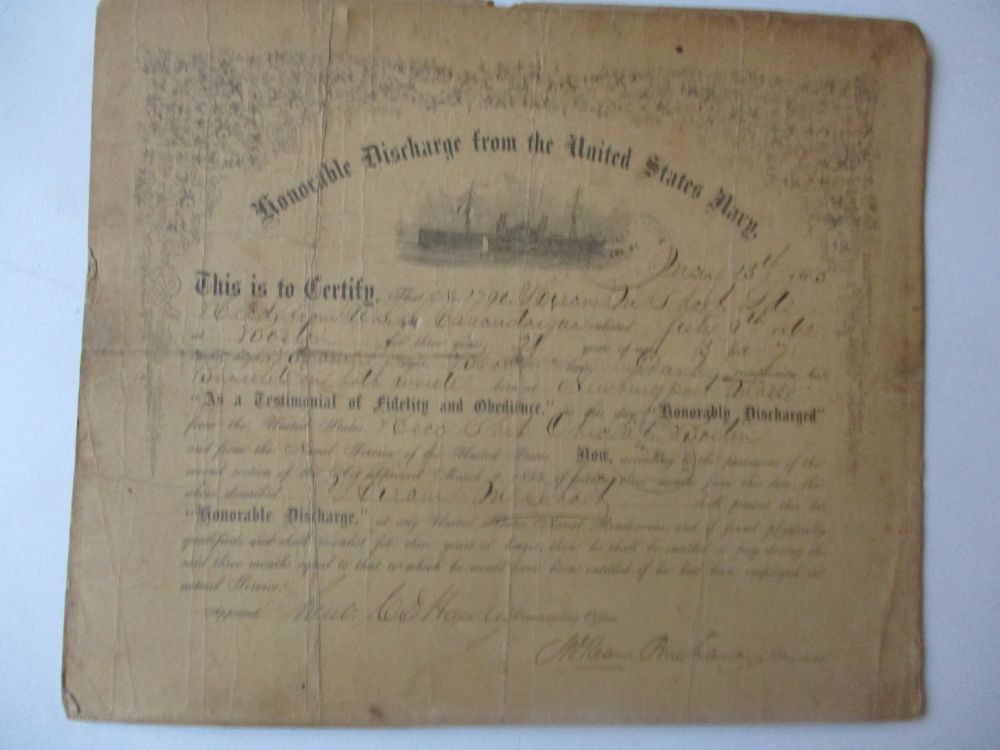 Honorable Discharge from the United States Navy.
May 13th 1865
This is to Certify, That No. 1790 Hiram M. Short
from U.S.S. Canandaigua enlisted July 9th 1862
at Boston for three years, 21 years of age, 5 feet 7
inches high, eyes, Brown hair, complexion, has
Bracelets on both wrists born at Newburyport Mass
"As a Testimonial of Fidelity and Obedience," is this day "Honorably Discharged"
from the United States Ship Ohio at Boston
and from the Naval Service of the United States. Now, according to the provisions of the
second section of the Act approved March 2, 1855, if within three months from this date, the
above described Hiram M Short shall present this his
"Honorable Discharge," at any United States Naval Rendezvous, and if found physically
qualified, and shall reenlist for three years or longer, then he shall be entitled to pay during the
said three months equal to that to which he would have been entitled if he had been employed in
actual Service.
Approved Commanding Officer.
McKean Buchanan Paymaster